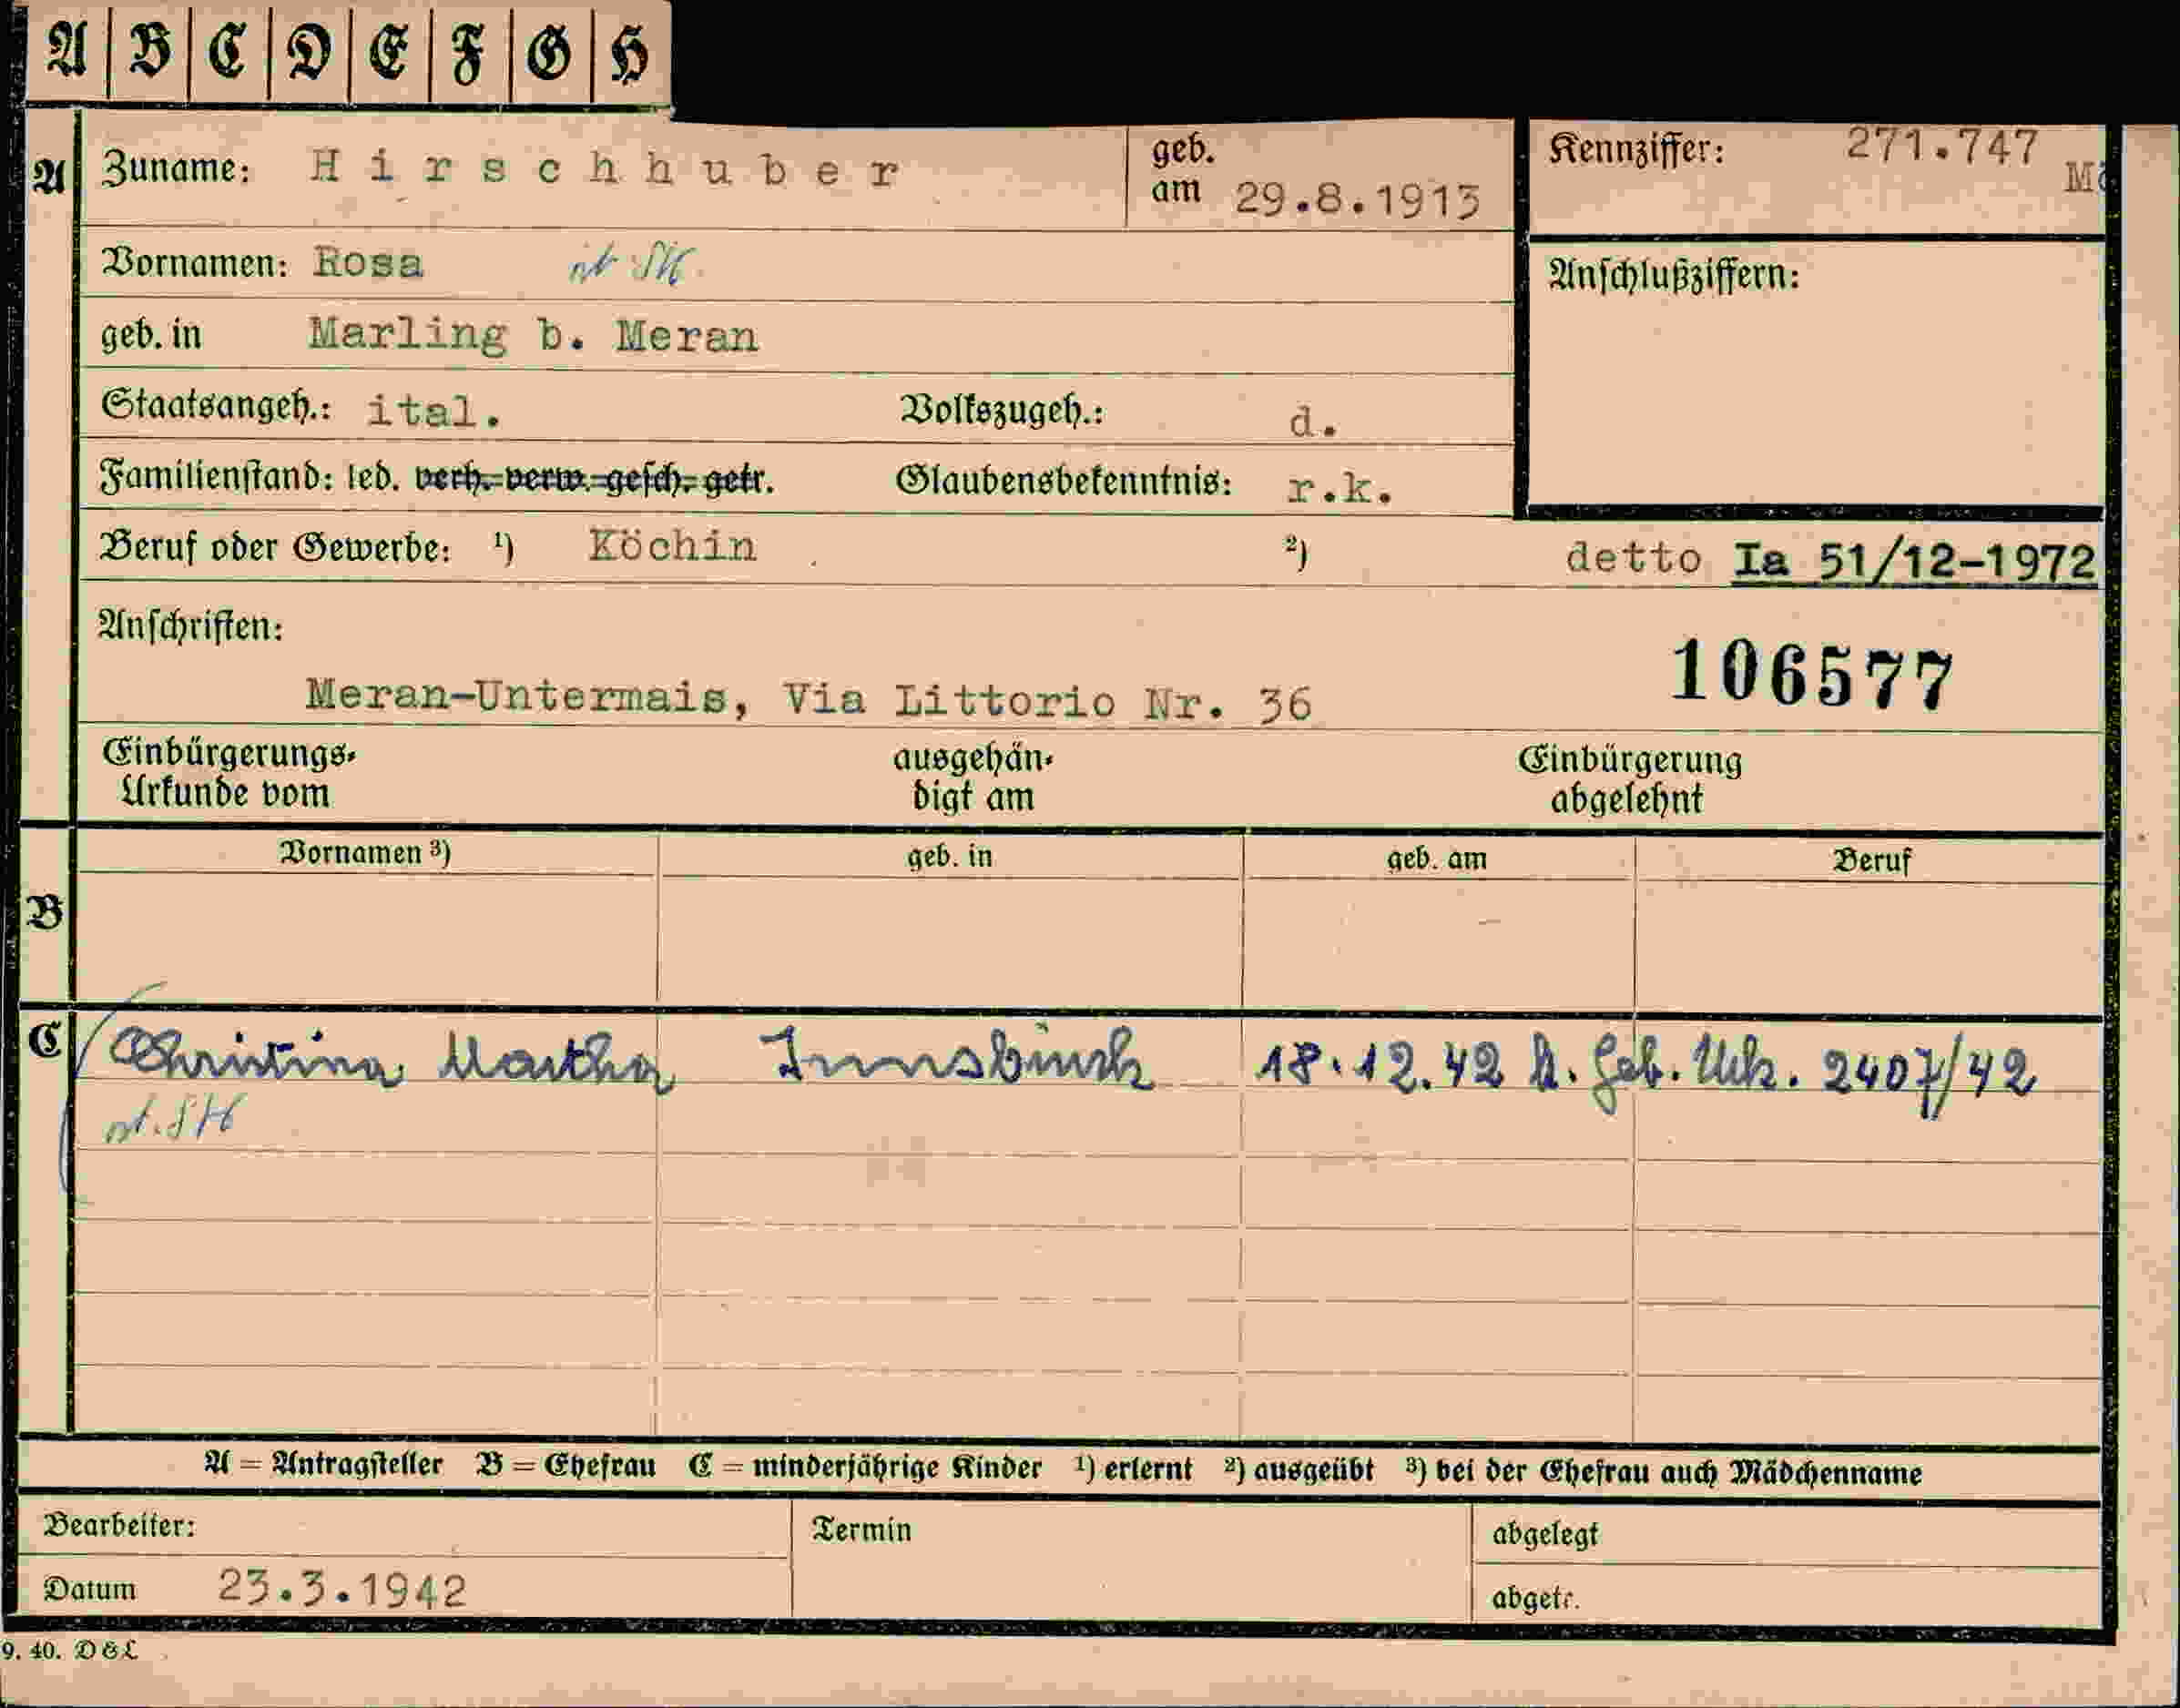 A B C D E F G H
A Zuname: Hirschhuber geb. am 29.8.1913 Kennziffer: 271.747
Vornamen: Rosa
Anschlußziffern:
geb. in Marling b. Meran
Staatsangeh.: ital. Volkszugeh.: d.
Familienstand: led. verh. verw. gesch. getr. Glaubensbekenntnis: r.k.
Beruf oder Gewerbe: ¹) Köchin ²) detto Ia 51/12-1972
Anschriften:
106577
Meran-Untermais, Via Littorio Nr. 36
Einbürgerungs- ausgehän- Einbürgerung
Urkunde vom digt am abgelehnt
Vornamen ³) geb. in geb. am Beruf
B
C Christina Martha Innsbruck 18.12.42 lt. Geb. Urk. 2407/42
A = Antragsteller B = Ehefrau C = minderjährige Kinder ¹) erlernt ²) ausgeübt ³) bei der Ehefrau auch Mädchenname
Bearbeiter: Termin abgelegt
Datum 23.3.1942 abgetr.
9. 40. D&L